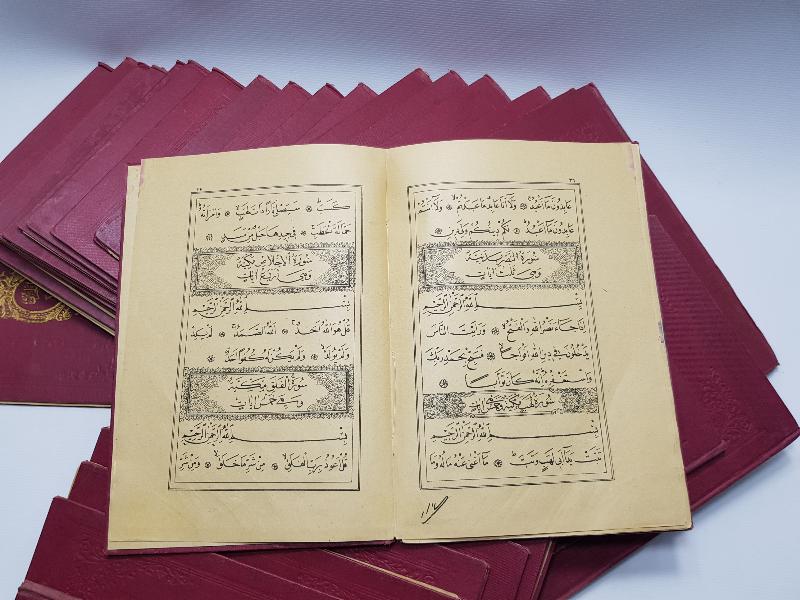 عَابِدُونَ مَا اَعْبُدُ ۞ وَلَا اَنَا عَابِدٌ مَا عَبَدْتُمْ ۞ وَلَا اَنْتُمْ
عَابِدُونَ مَا اَعْبُدُ ۞ لَكُمْ دِينُكُمْ وَلِيَ دِينِ
سُورَةُ النَّصْرِ مَدَنِيَّةٌ
وَهِيَ ثَلٰثُ اٰيَاتٍ
بِسْمِ اللّٰهِ الرَّحْمٰنِ الرَّحِيمِ
اِذَا جَاءَ نَصْرُ اللّٰهِ وَالْفَتْحُ ۞ وَرَاَيْتَ النَّاسَ
يَدْخُلُونَ فِي دِينِ اللّٰهِ اَفْوَاجًا ۞ فَسَبِّحْ بِحَمْدِ رَبِّكَ
وَاسْتَغْفِرْهُ اِنَّهُ كَانَ تَوَّابًا ۞
بِسْمِ اللّٰهِ الرَّحْمٰنِ الرَّحِيمِ
تَبَّتْ يَدَا اَبِي لَهَبٍ وَتَبَّ ۞ مَا اَغْنٰى عَنْهُ مَالُهُ وَمَا
كَسَبَ ۞ سَيَصْلٰى نَارًا ذَاتَ لَهَبٍ ۞ وَامْرَاَتُهُ
حَمَّالَةَ الْحَطَبِ ۞ فِي جِيدِهَا حَبْلٌ مِنْ مَسَدٍ
سُورَةُ الْاِخْلَاصِ مَكِّيَّةٌ
وَهِيَ اَرْبَعُ اٰيَاتٍ
بِسْمِ اللّٰهِ الرَّحْمٰنِ الرَّحِيمِ
قُلْ هُوَ اللّٰهُ اَحَدٌ ۞ اَللّٰهُ الصَّمَدُ ۞ لَمْ يَلِدْ
وَلَمْ يُولَدْ ۞ وَلَمْ يَكُنْ لَهُ كُفُوًا اَحَدٌ ۞
سُورَةُ الْفَلَقِ مَكِّيَّةٌ
وَهِيَ خَمْسُ اٰيَاتٍ
بِسْمِ اللّٰهِ الرَّحْمٰنِ الرَّحِيمِ
قُلْ اَعُوذُ بِرَبِّ الْفَلَقِ ۞ مِنْ شَرِّ مَا خَلَقَ ۞ وَمِنْ شَرِّ